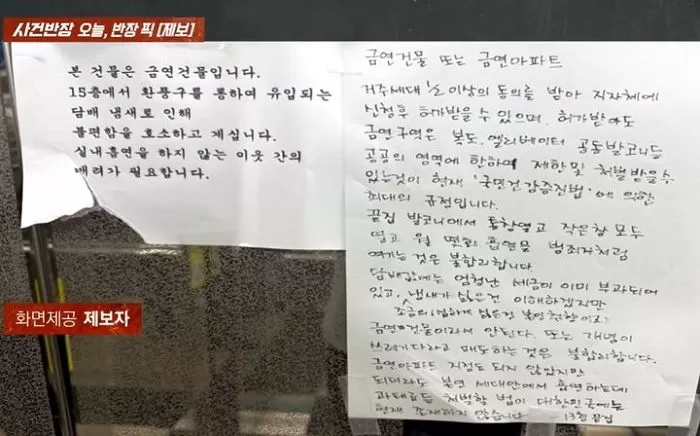 사건반장 오늘, 반장 픽 [제보]
본 건물은 금연건물입니다.
15층에서 환풍구를 통하여 유입되는
담배 냄새로 인해
불편함을 호소하고 계십니다.
실내흡연을 하지 않는 이웃 간의
배려가 필요합니다.
화면제공 제보자
금연건물 또는 금연아파트
거주세대 ½ 이상의 동의를 받아 지자체에
신청후 허가받을 수 있으며, 허가받아도
금연구역은 복도, 엘리베이터 공동발코니등
공공의 영역에 한하여 제한 및 처벌받을수
있는것이 현재 '국민건강증진법'에 의한
최대의 규정입니다.
끝집 발코니에서 통창열고 작은창 모두
열고 흡연을 범죄자처럼
여기는 것은 불합리합니다
담배값에는 엄청난 세금이 이미 부과되어
있고, 냄새가 싫은건 이해하겠지만
금연건물이라서 안된다. 또는 개념이
쓰레기다라고 매도하는 것은 불합리합니다.
금연아파트 지정도 되지 않았지만
되더라도 본인 세대안에서 흡연하는데
과태료등 처벌할 법이 대한민국에는
현재 존재하지 않습니다 - 13층 끝집